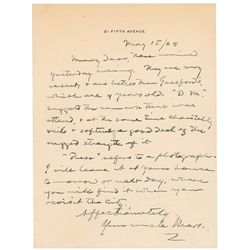 21 FIFTH AVENUE
May 15/08
Maury dear, have arrived
yesterday evening. They are very
recent, & are better than
which are 4 years old. "D.M."
suggests the remark that was
uttered, & at the same time charitably
veils & softens a good deal of the
rugged strength of it.
"These" refers to a photograph.
I will leave it at your house
tomorrow or next day, where
you will find it when you
revisit the city.
Affectionately
Your uncle Mark.